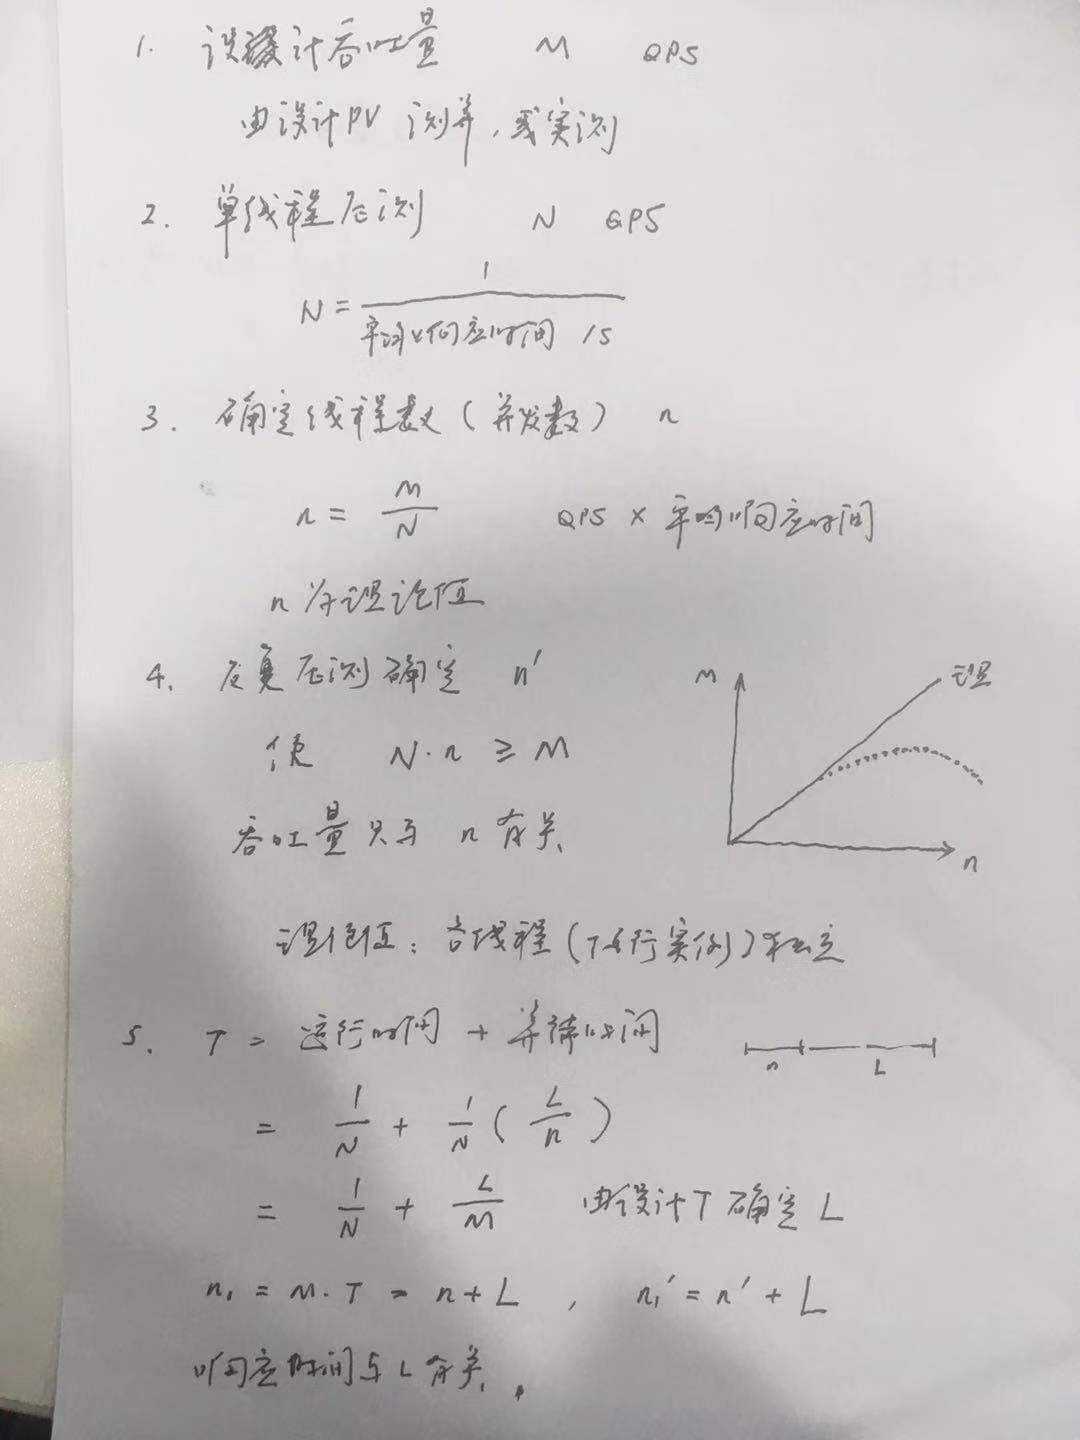 1. 设计吞吐量 M QPS
由设计PV 测算,或实测
2. 单线程压测 N QPS
N = 1 / 平均响应时间 /s
3. 确定线程数(并发数) n
n = M/N QPS × 平均响应时间
n 为理论值
4. 反复压测确定 n'
使 N·n ≥ M
吞吐量只与 n 有关、
M
理
n
理论值:各线程(运行实例)独立
5. T = 运行时间 + 等待时间
n L
= 1/N + 1/N ( L/n )
= 1/N + L/M 由设计T确定L
n₁ = M·T = n+L , n₁' = n' + L
响应时间与L有关、